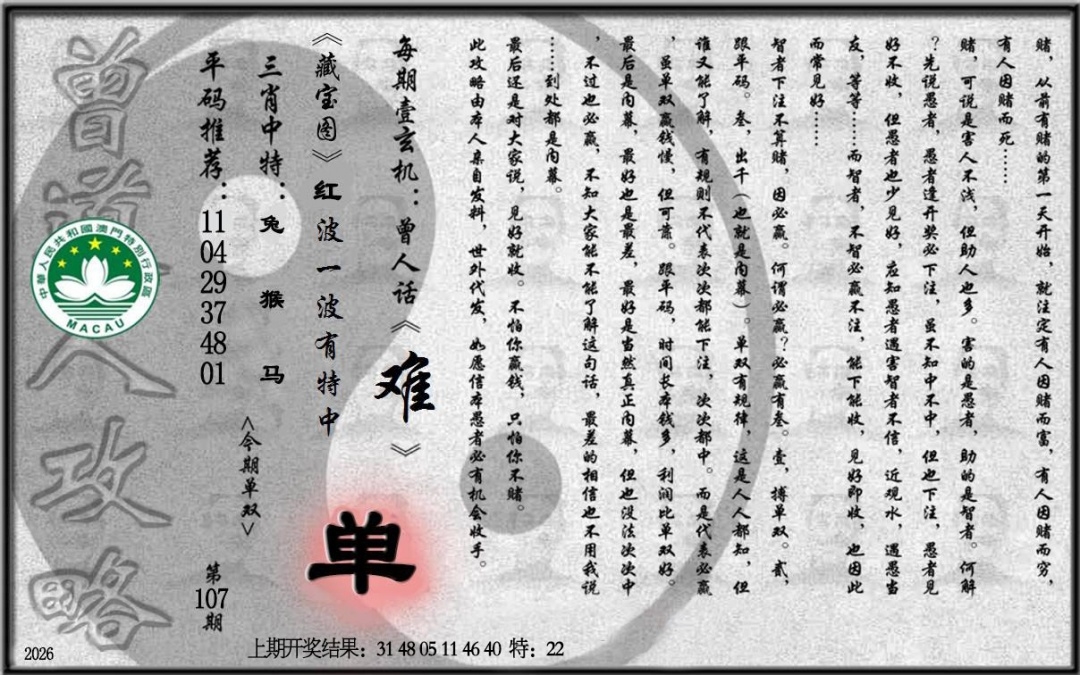 赌，从前有赌的第一天开始，就注定有人因赌而富，有人因赌而穷，
有人因赌而死……
赌，可说是害人不浅，但助人也多。害的是愚者，助的是智者。何解
？先说愚者，愚者逢开奖必下注，虽不知中不中，但也下注，愚者见
好不收，但愚者也少见好，应知愚者遇害智者不信，近观水，遇愚当
友，等等……而智者，不智必赢不注，能下能收，见好即收，也因此
而常见好……
智者下注不算赌，因必赢。何谓必赢？必赢有叁。壹，搏单双。贰，
跟单码。叁，出千（也就是内幕）。单双有规律，这是人人都知，但
谁又能了解，有规则不代表次次都能下注，次次都中。而是代表必赢
，虽单双赢钱慢，但可靠。跟单码，时间长本钱多，利润比单双好。
最后是内幕，最好也是最差，最好是当然真正内幕，但也没法次次中
，不过也必赢，不知大家能不能了解这句话，最差的相信也不用我说
……到处都是内幕。
最后还是对大家说，见好就收。不怕你赢钱，只怕你不赌。
此攻略由本人亲自发料，世外代发，如愿信本愚者必有机会收手。
每期壹玄机：曾人话《难》
《藏宝图》红波一波有特中
单
三肖中特：兔 猴 马
<今期单双>
平码推荐：11 04 29 37 48 01
第107期
曾道人攻略
中華人民共和國澳門特別行政區
MACAU
2026
上期开奖结果：31 48 05 11 46 40 特：22